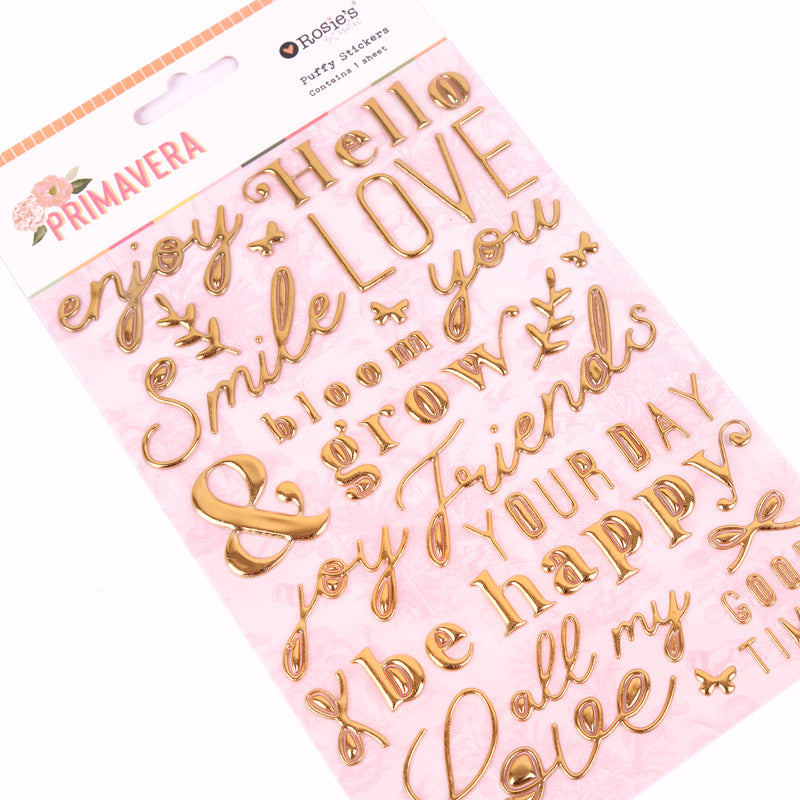 Rosie's
Studio
Puffy Stickers
Contains 1 sheet
PRIMAVERA
Hello
enjoy
LOVE
Smile
you
bloom
grow
Friends
&
YOUR DAY
joy
be happy
GOOD
all my
Love